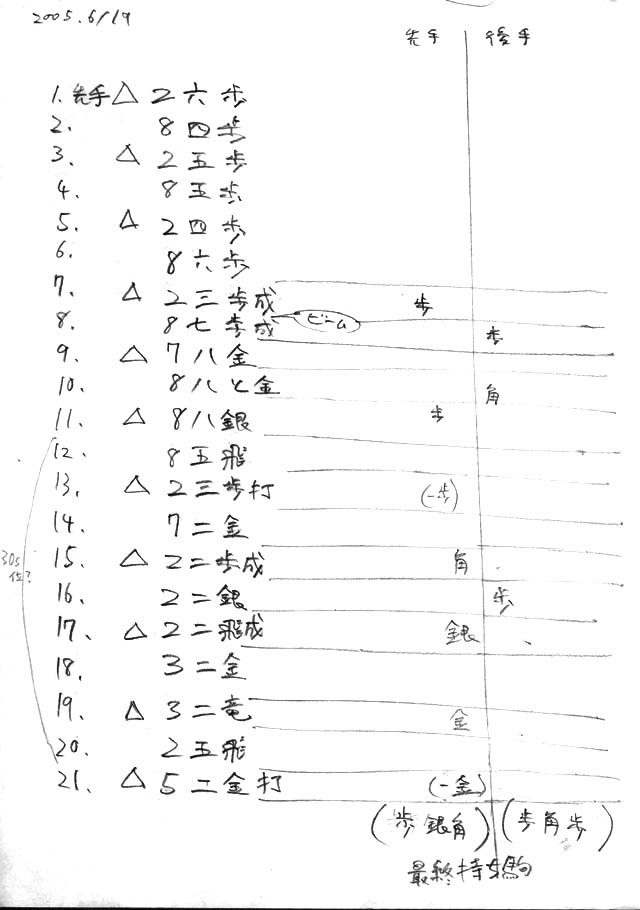 2005.6/19
先手 後手
1. 先手 △ 2 六 歩
2. 8 四 歩
3. △ 2 五 歩
4. 8 五 歩
5. △ 2 四 歩
6. 8 六 歩
7. △ 2 三 歩成 歩
8. 8 七 歩成 ビーム 歩
9. △ 7 八 金
10. 8 八 と金 角
11. △ 8 八 銀 歩
12. 8 五 飛
13. △ 2 三 歩打 (-歩)
14. 7 二 金
15. △ 2 二 歩成 角
16. 2 二 銀 歩
17. △ 2 二 飛成 銀
18. 3 二 金
19. △ 3 二 竜 金
20. 2 五 飛
21. △ 5 二 金打 (-金)
30s位?
(歩銀角) (歩角歩)
最終持ち駒